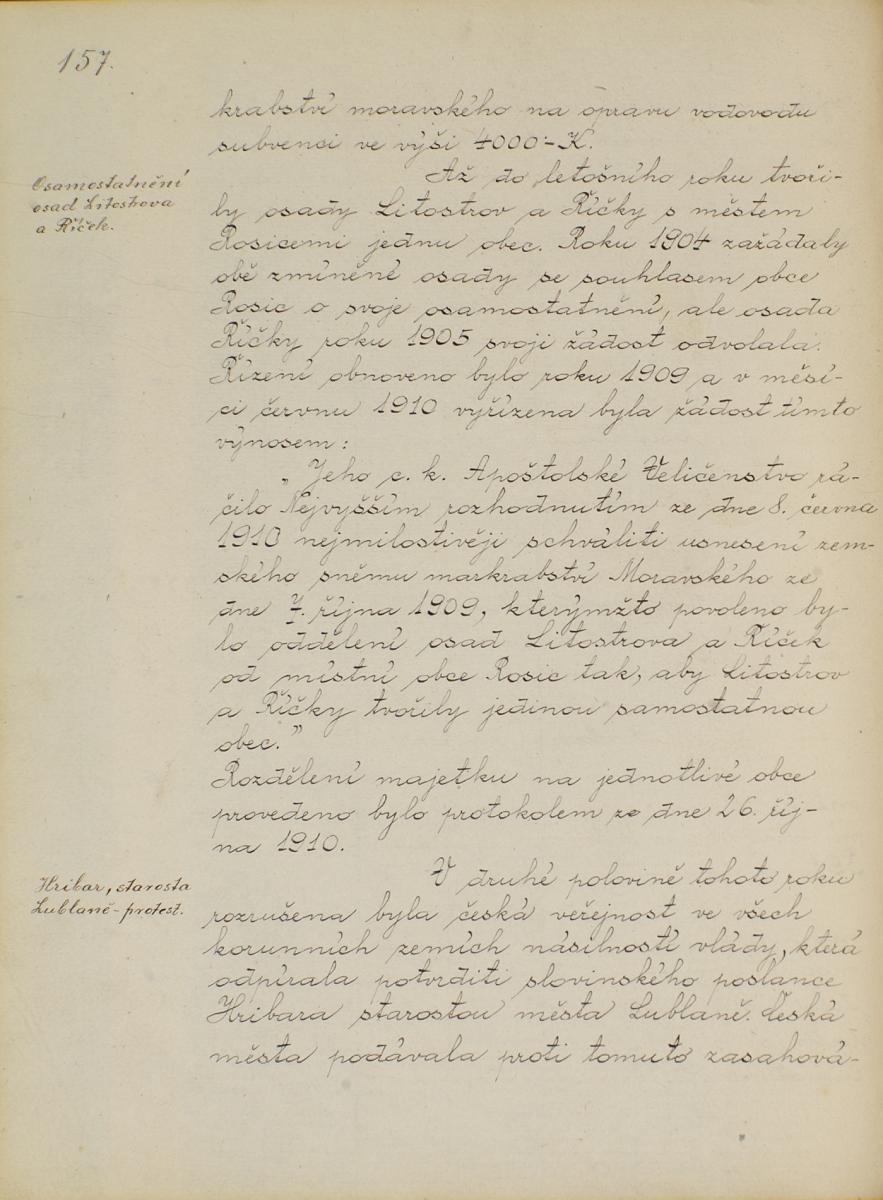 157.
krabství moravského na opravu vodovodu
subvenci ve výši 4000·- K.
Osamostatnění
osad Litostrova
a Říček.
Až do letošního roku tvoři-
ly osady Litostrov a Říčky s městem
Rosicemi jednu obec. Roku 1904 zažádaly
obě zmíněné osady se souhlasem obce
Rosic o svoje osamostatnění, ale osada
Říčky roku 1905 svoji žádost odvolala.
Řízení obnoveno bylo roku 1909 a v měsí-
ci červnu 1910 vyřízena byla žádost tímto
výnosem:
„Jeho c. k. Apoštolské Veličenstvo rá-
čilo Nejvyšším rozhodnutím ze dne 8. června
1910 nejmilostivěji schváliti usnesení zem-
ského sněmu markrabství Moravského ze
dne 7. října 1909, kterýmžto povoleno by-
lo oddělení osad Litostrova a Říček
od místní obce Rosic tak, aby Litostrov
a Říčky tvořily jedinou samostatnou
obec.”
Rozdělení majetku na jednotlivé obce
provedeno bylo protokolem ze dne 26. říj-
na 1910.
Hribar, starosta
Lublaně - protest.
V druhé polovině tohoto roku
rozrušena byla česká veřejnost ve všech
korunních zemích násilností vlády, která
odpírala potvrditi slovinského poslance
Hribara starostou města Lublaně. Česká
města podávala proti tomuto zasahová-